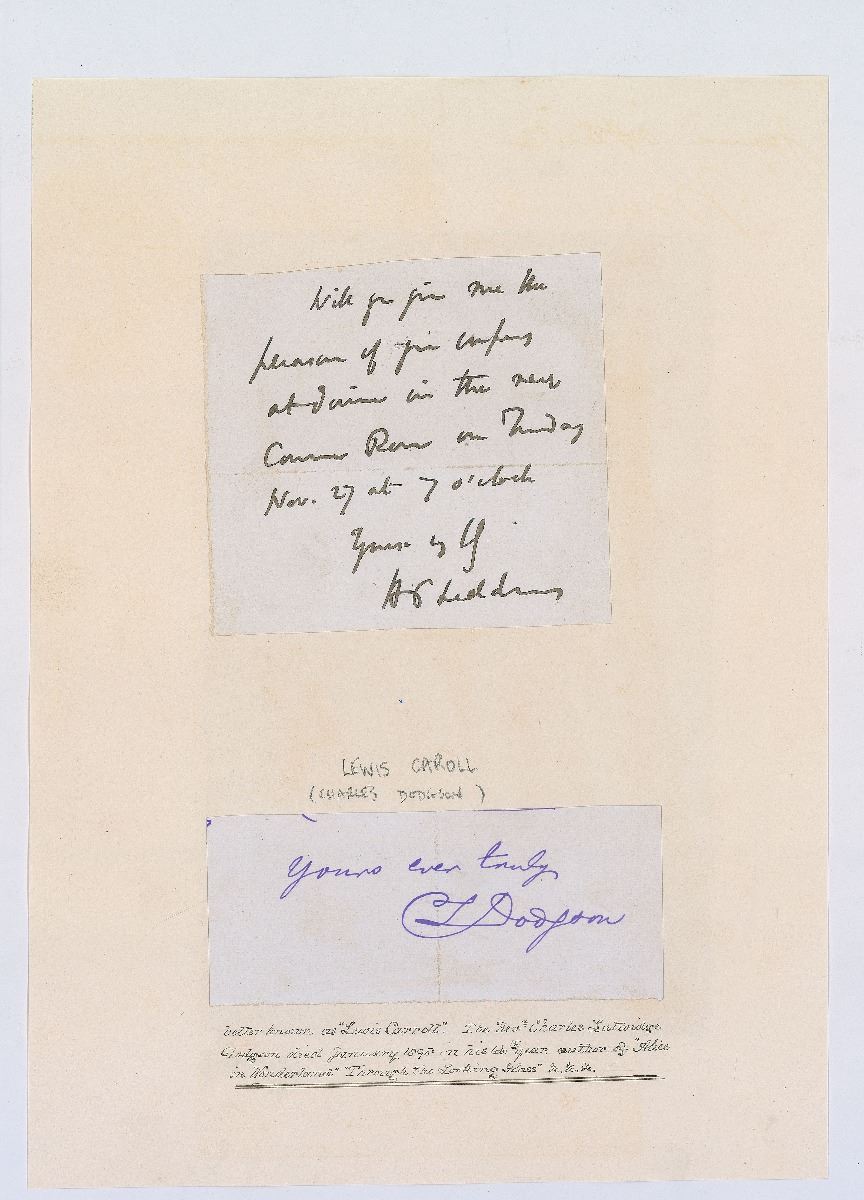 Will you give me the
pleasure of your company
at dinner in the new
Common Room on Tuesday
Nov. 27 at 7 o'clock
Yours
H P Liddon
LEWIS CAROLL
(CHARLES DODGSON)
Yours ever truly
CL Dodgson
better known as "Lewis Carroll". The Revd Charles Lutwidge
Dodgson died January 1898 in his 66th year author of "Alice
in Wonderland" "Through the Looking Glass" &c. &c.